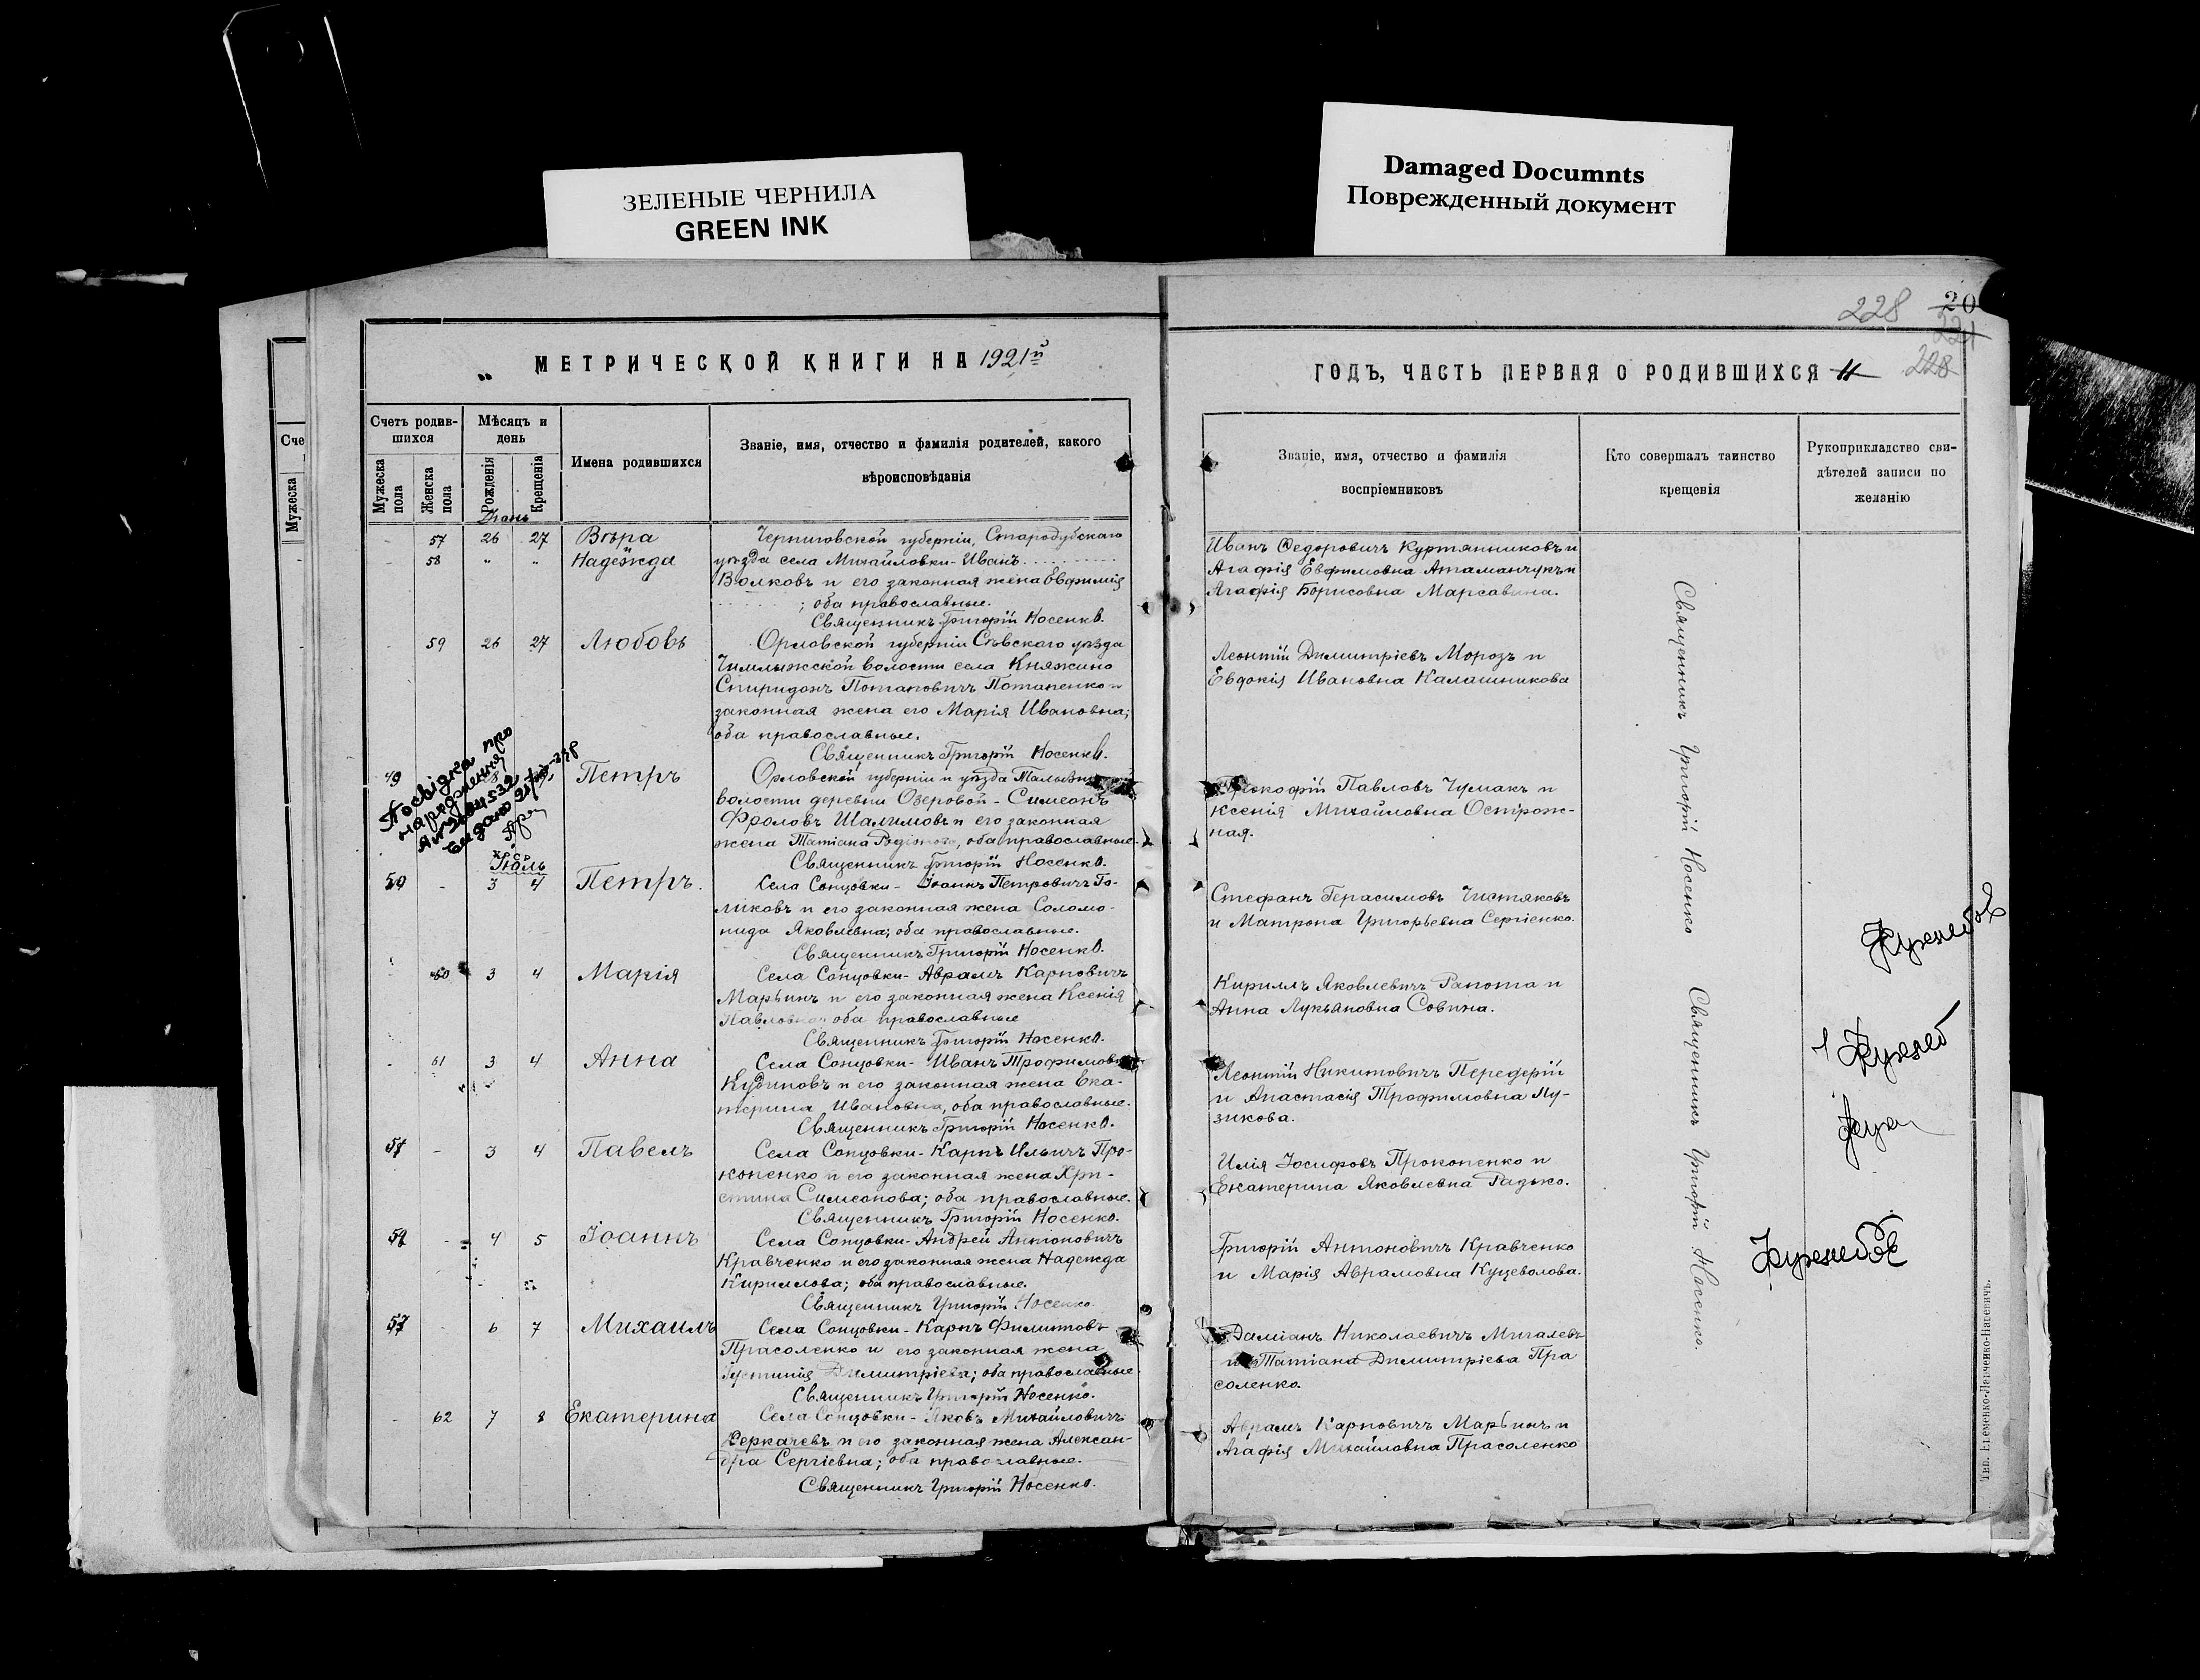 ЗЕЛЕНЫЕ ЧЕРНИЛА
GREEN INK
Damaged Documnts
Поврежденный документ
МЕТРИЧЕСКОЙ КНИГИ НА 1921й
Счетъ родив-
шихся
Мѣсяцъ и
день
Имена родившихся
Званіе, имя, отчество и фамилія родителей, какого
вѣроисповѣданія
Мужеска пола
Женска пола
Рожденія
Крещенія
57 26 27 Вѣра Черниговской губерніи, Стародубскаго
58 " " Надежда уѣзда села Михайловки - Иванъ
Волковъ и его законная жена Евфимія
; оба православные.
Священникъ Григорій Носенко.
59 26 27 Любовь Орловской губерніи Сѣвскаго уѣзда
Чемлыжской волости села Княжино
Спиридонъ Потаповичъ Потапенко и
законная жена его Марія Ивановна;
оба православные.
Священникъ Григорій Носенко.
49 Петръ Орловской губерніи и уѣзда
волости деревни Озеровой - Симеонъ
Фроловъ Шалимовъ и его законная
жена Татіана, оба православные.
Священникъ Григорій Носенко.
Посвідка про
народження
Іюль
50 - 3 4 Петръ. Села Сонцовки - Іоаннъ Петровичъ Го-
ликовъ и его законная жена Соломо-
нида Яковлевна; оба православные.
Священникъ Григорій Носенко.
- 60 3 4 Марія Села Сонцовки - Аврамъ Карповичъ
Марьинъ и его законная жена Ксенія
Павловна; оба православные
Священникъ Григорій Носенко.
- 61 3 4 Анна Села Сонцовки - Иванъ Трофимовичъ
Кудиновъ и его законная жена Ека-
терина Ивановна, оба православные.
Священникъ Григорій Носенко.
51 - 3 4 Павелъ Села Сонцовки - Карпъ Ильичъ Про-
копенко и его законная жена Хри-
стина Симеонова; оба православные.
Священникъ Григорій Носенко.
52 - 4 5 Іоаннъ Села Сонцовки - Андрей Антоновичъ
Кравченко и его законная жена Надежда
Кириллова; оба православные.
Священникъ Григорій Носенко.
53 6 7 Михаилъ Села Сонцовки - Карпъ Филиповъ
Прасоленко и его законная жена
Іустинія Димитріева; оба православные
Священникъ Григорій Носенко.
- 62 7 8 Екатерина Села Сонцовки - Яковъ Михайловичъ
Деркачевъ и его законная жена Алексан-
дра Сергіевна; оба православные.
Священникъ Григорій Носенко.
228 20
221
228
ГОДЪ, ЧАСТЬ ПЕРВАЯ О РОДИВШИХСЯ
Званіе, имя, отчество и фамилія
воспріемниковъ
Кто совершалъ таинство
крещенія
Рукоприкладство сви-
дѣтелей записи по
желанію
Иванъ Федоровичъ Куртянниковъ и
Агафія Евфимовна Атаманчукъ и
Агафія Борисовна Марсавина.
Леонтій Димитріевъ Морозъ и
Евдокія Ивановна Калашникова
Прокофій Павловъ Чумакъ и
Ксенія Михайловна Острож-
ная.
Стефанъ Герасимовъ Чистяковъ
и Матрона Григорьевна Сергіенко.
Кириллъ Яковлевичъ Рапота и
Анна Лукьяновна Совина.
Леонтій Никитовичъ Передерій
и Анастасія Трофимовна Пу-
зикова.
Илія Іосифовъ Прокопенко и
Екатерина Яковлевна Радько.
Григорій Антоновичъ Кравченко
и Марія Аврамовна Куцеволова.
Даміанъ Николаевичъ Мигалевъ
и Татіана Димитріева Пра
соленко.
Аврамъ Карповичъ Марьинъ и
Агафія Михайловна Прасоленко
Священникъ Григорій Носенко
Священникъ Григорій Носенко.
Счe
Мужеска